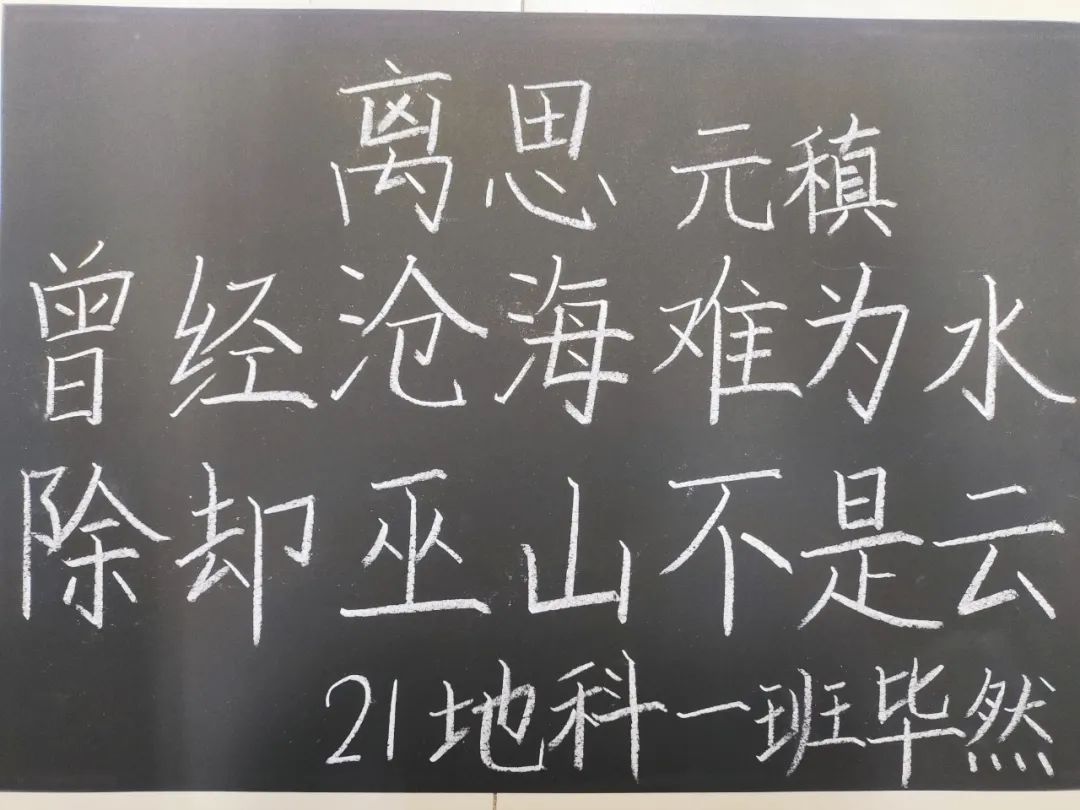 离思 元稹
曾经沧海难为水
除却巫山不是云
21地科一班毕然